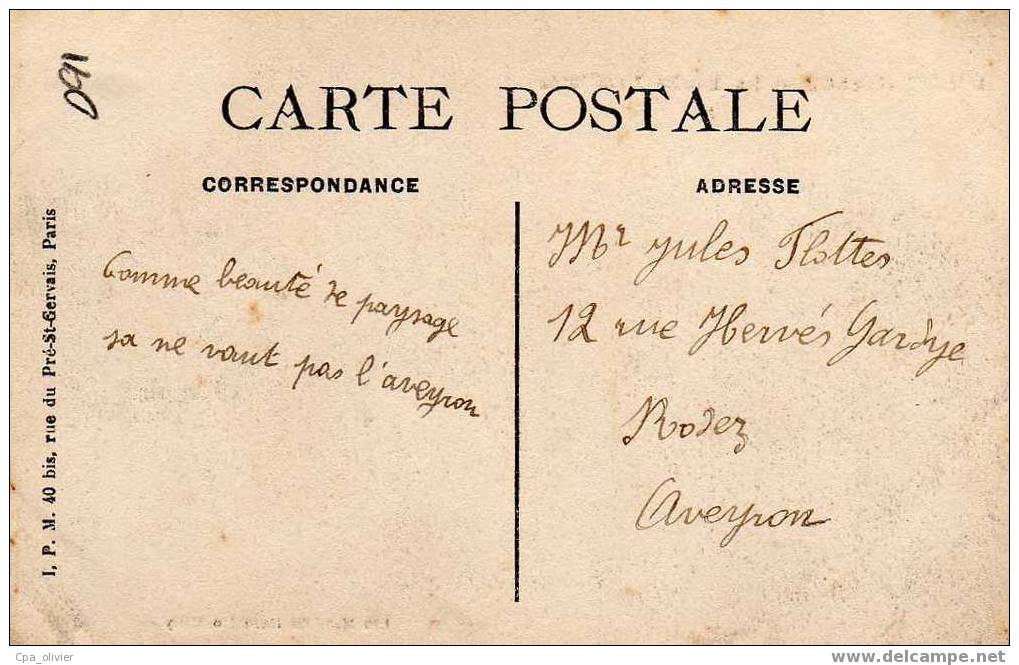 091
CARTE POSTALE
CORRESPONDANCE
ADRESSE
Comme beauté de paysage
sa ne vaut pas l'aveyron
Mr jules Flottes
12 rue Hervés Gardye
Rodez
Aveyron
I. P. M. 40 bis, rue du Pré-St-Gervais, Paris
Cpa_olivier
www.delcampe.net